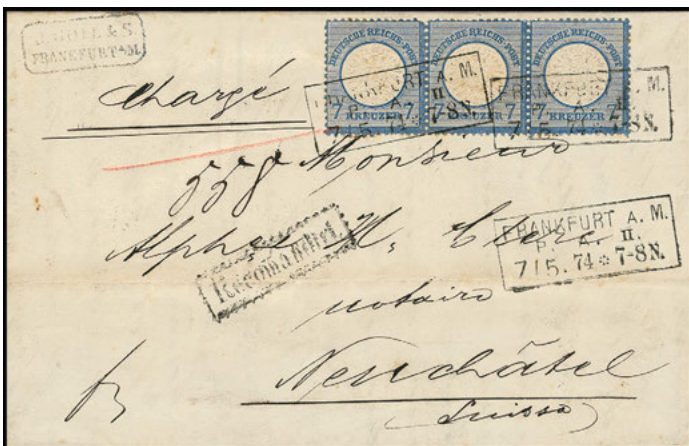 & S.
FRANKFURT a/M.
DEUTSCHE REICHS-POST
7 7
KREUZER
DEUTSCHE REICHS-POST
7 7
KREUZER
DEUTSCHE REICHS-POST
7 7
KREUZER
FRANKFURT A. M.
P. A. II.
7 | 5. 74 7-8N.
FRANKFURT A. M.
P. A. II.
7 | 5. 74 7-8N.
Chargé
558
Monsieur
Alphse H.
Recommandirt.
FRANKFURT A. M.
P. A. II.
7 | 5. 74 7-8N.
notaire
Neuchâtel
Suisse